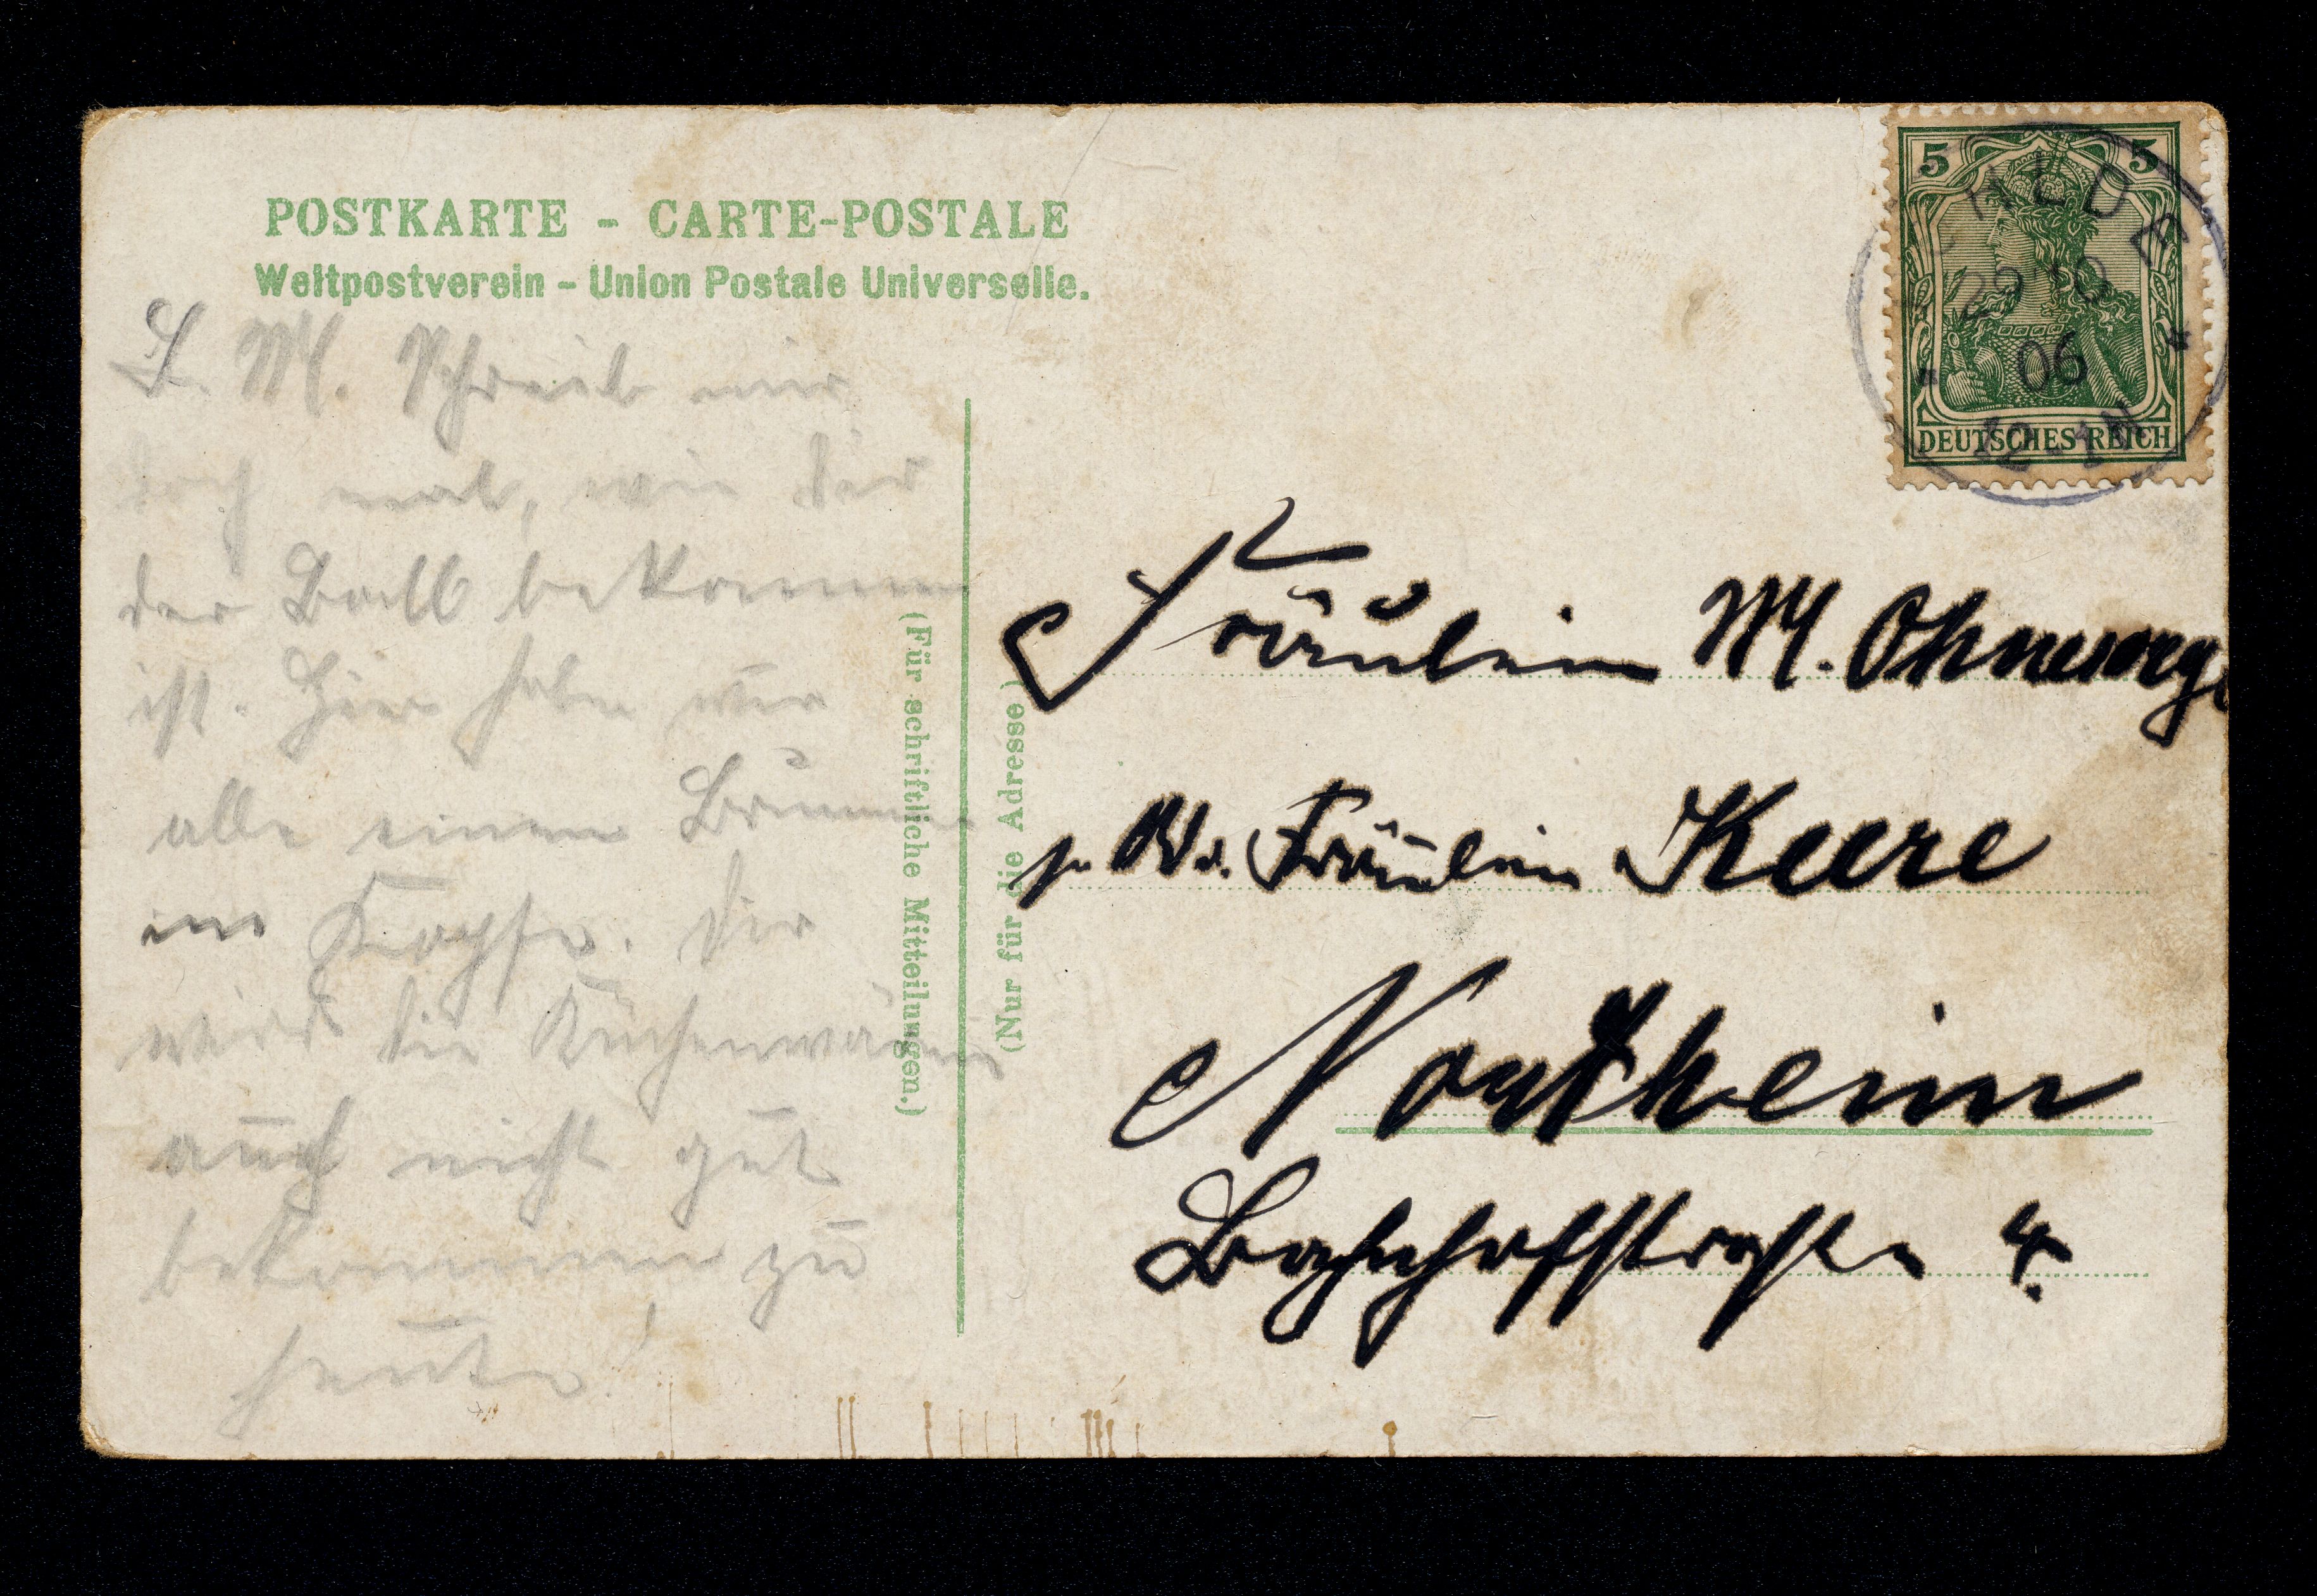 POSTKARTE - CARTE-POSTALE
Weltpostverein - Union Postale Universelle.
L. M. Schreib mir
doch mal, wie dir
der Ball bekommen
ist. Hier haben wir
alle einen Brumm
im Kopfe. Dir
wird die
auch nicht gut
bekommen zu
heute!
(Für schriftliche Mitteilungen.)
(Nur für die Adresse)
5 5
29 10
06
DEUTSCHES REICH
Fräulein M. Ohnesorge
Fräulein Keere
Northeim
Bahnhofstraße 4.